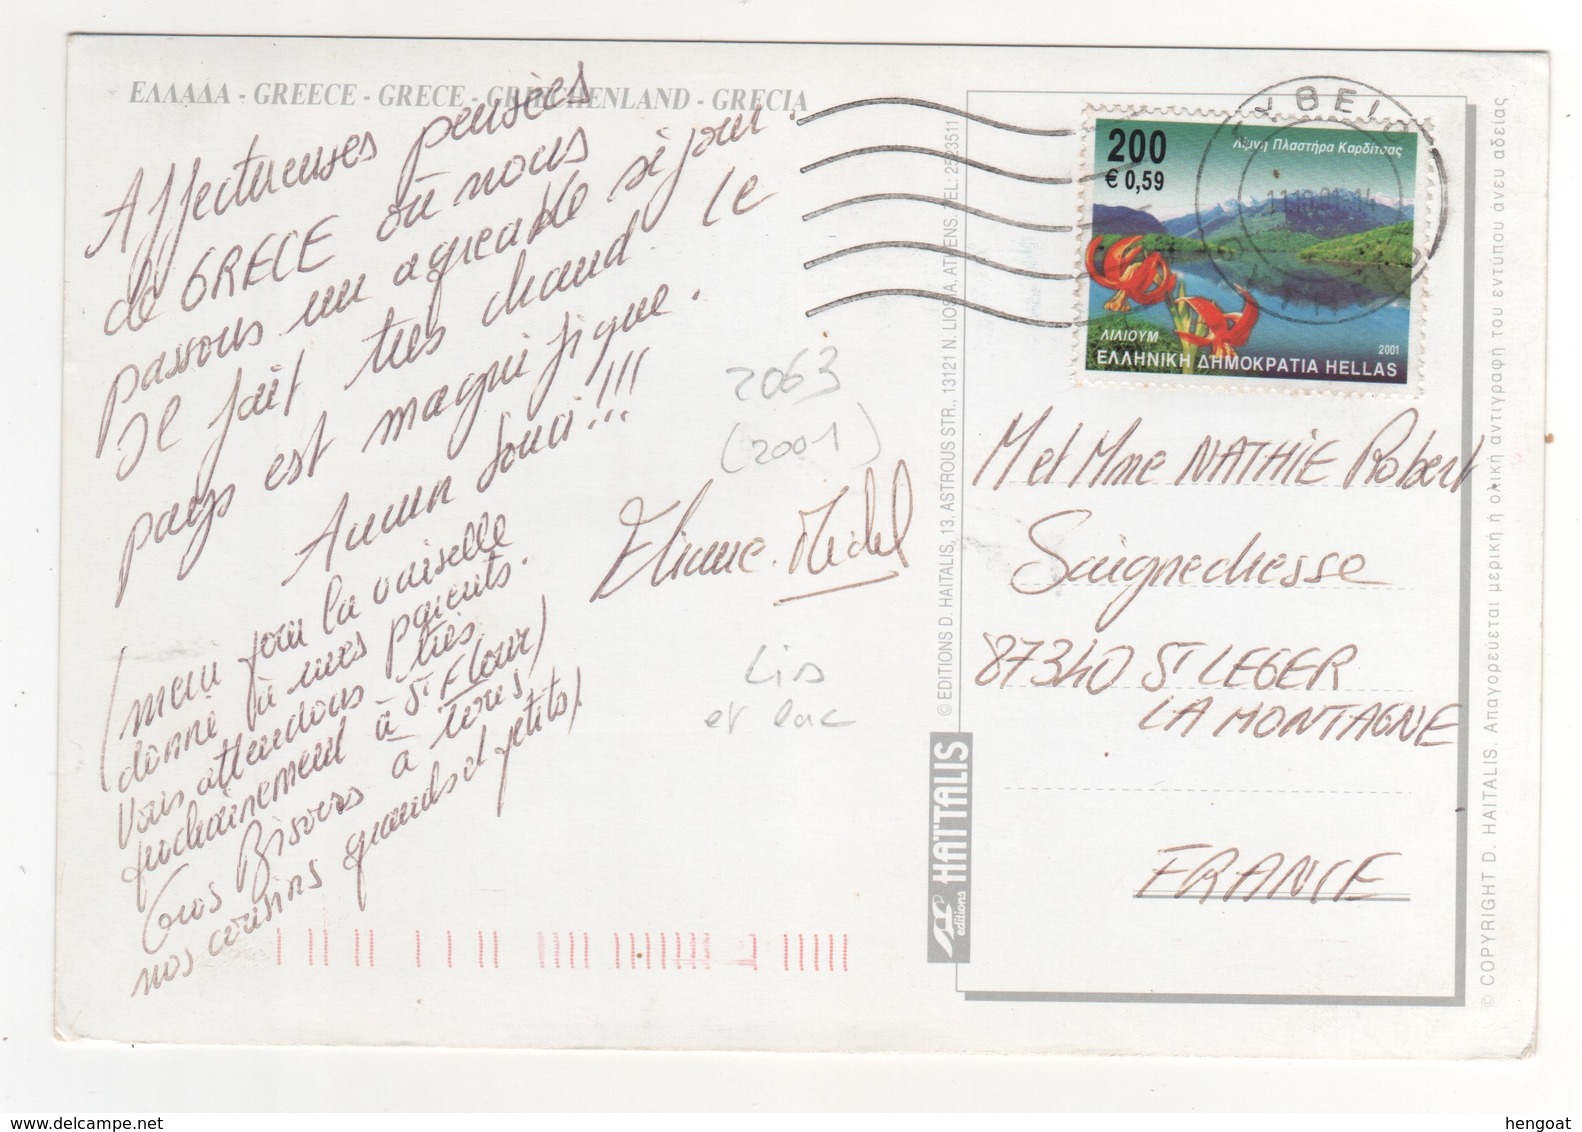 ΕΛΛΑΔΑ - GREECE - GRECE - GRIECHENLAND - GRECIA
Affectueuses pensées
de GRECE où nous
passons un agreable séjour.
Il fait très chaud. Le
pays est magnifique.
Aucun souci !!!
(merci pour la vaiselle
donné à mes parents.
Vous attendons très
prochainement à St Flour)
Gros Bisous à tous,
nos cousins grands et petits)
Eliane. Michel
2063
(2001)
Lis
et lac
© EDITIONS D. HAITALIS, 13, ASTROUS STR., 13121 N. LIOSIA, ATHENS. TEL: 2523511
HAΪTALIS
editions
200
€ 0,59
Λίμνη Πλαστήρα Καρδίτσας
ΛΙΛΙΟΥΜ
2001
ΕΛΛΗΝΙΚΗ ΔΗΜΟΚΡΑΤΙΑ HELLAS
M et Mme NATHIE Robert
Saignedresse
87340 ST LEGER
LA MONTAGNE
FRANCE
© COPYRIGHT D. HAITALIS. Απαγορεύεται μερική ή ολική αντιγραφή του εντύπου άνευ αδείας
www.delcampe.net
hengoat